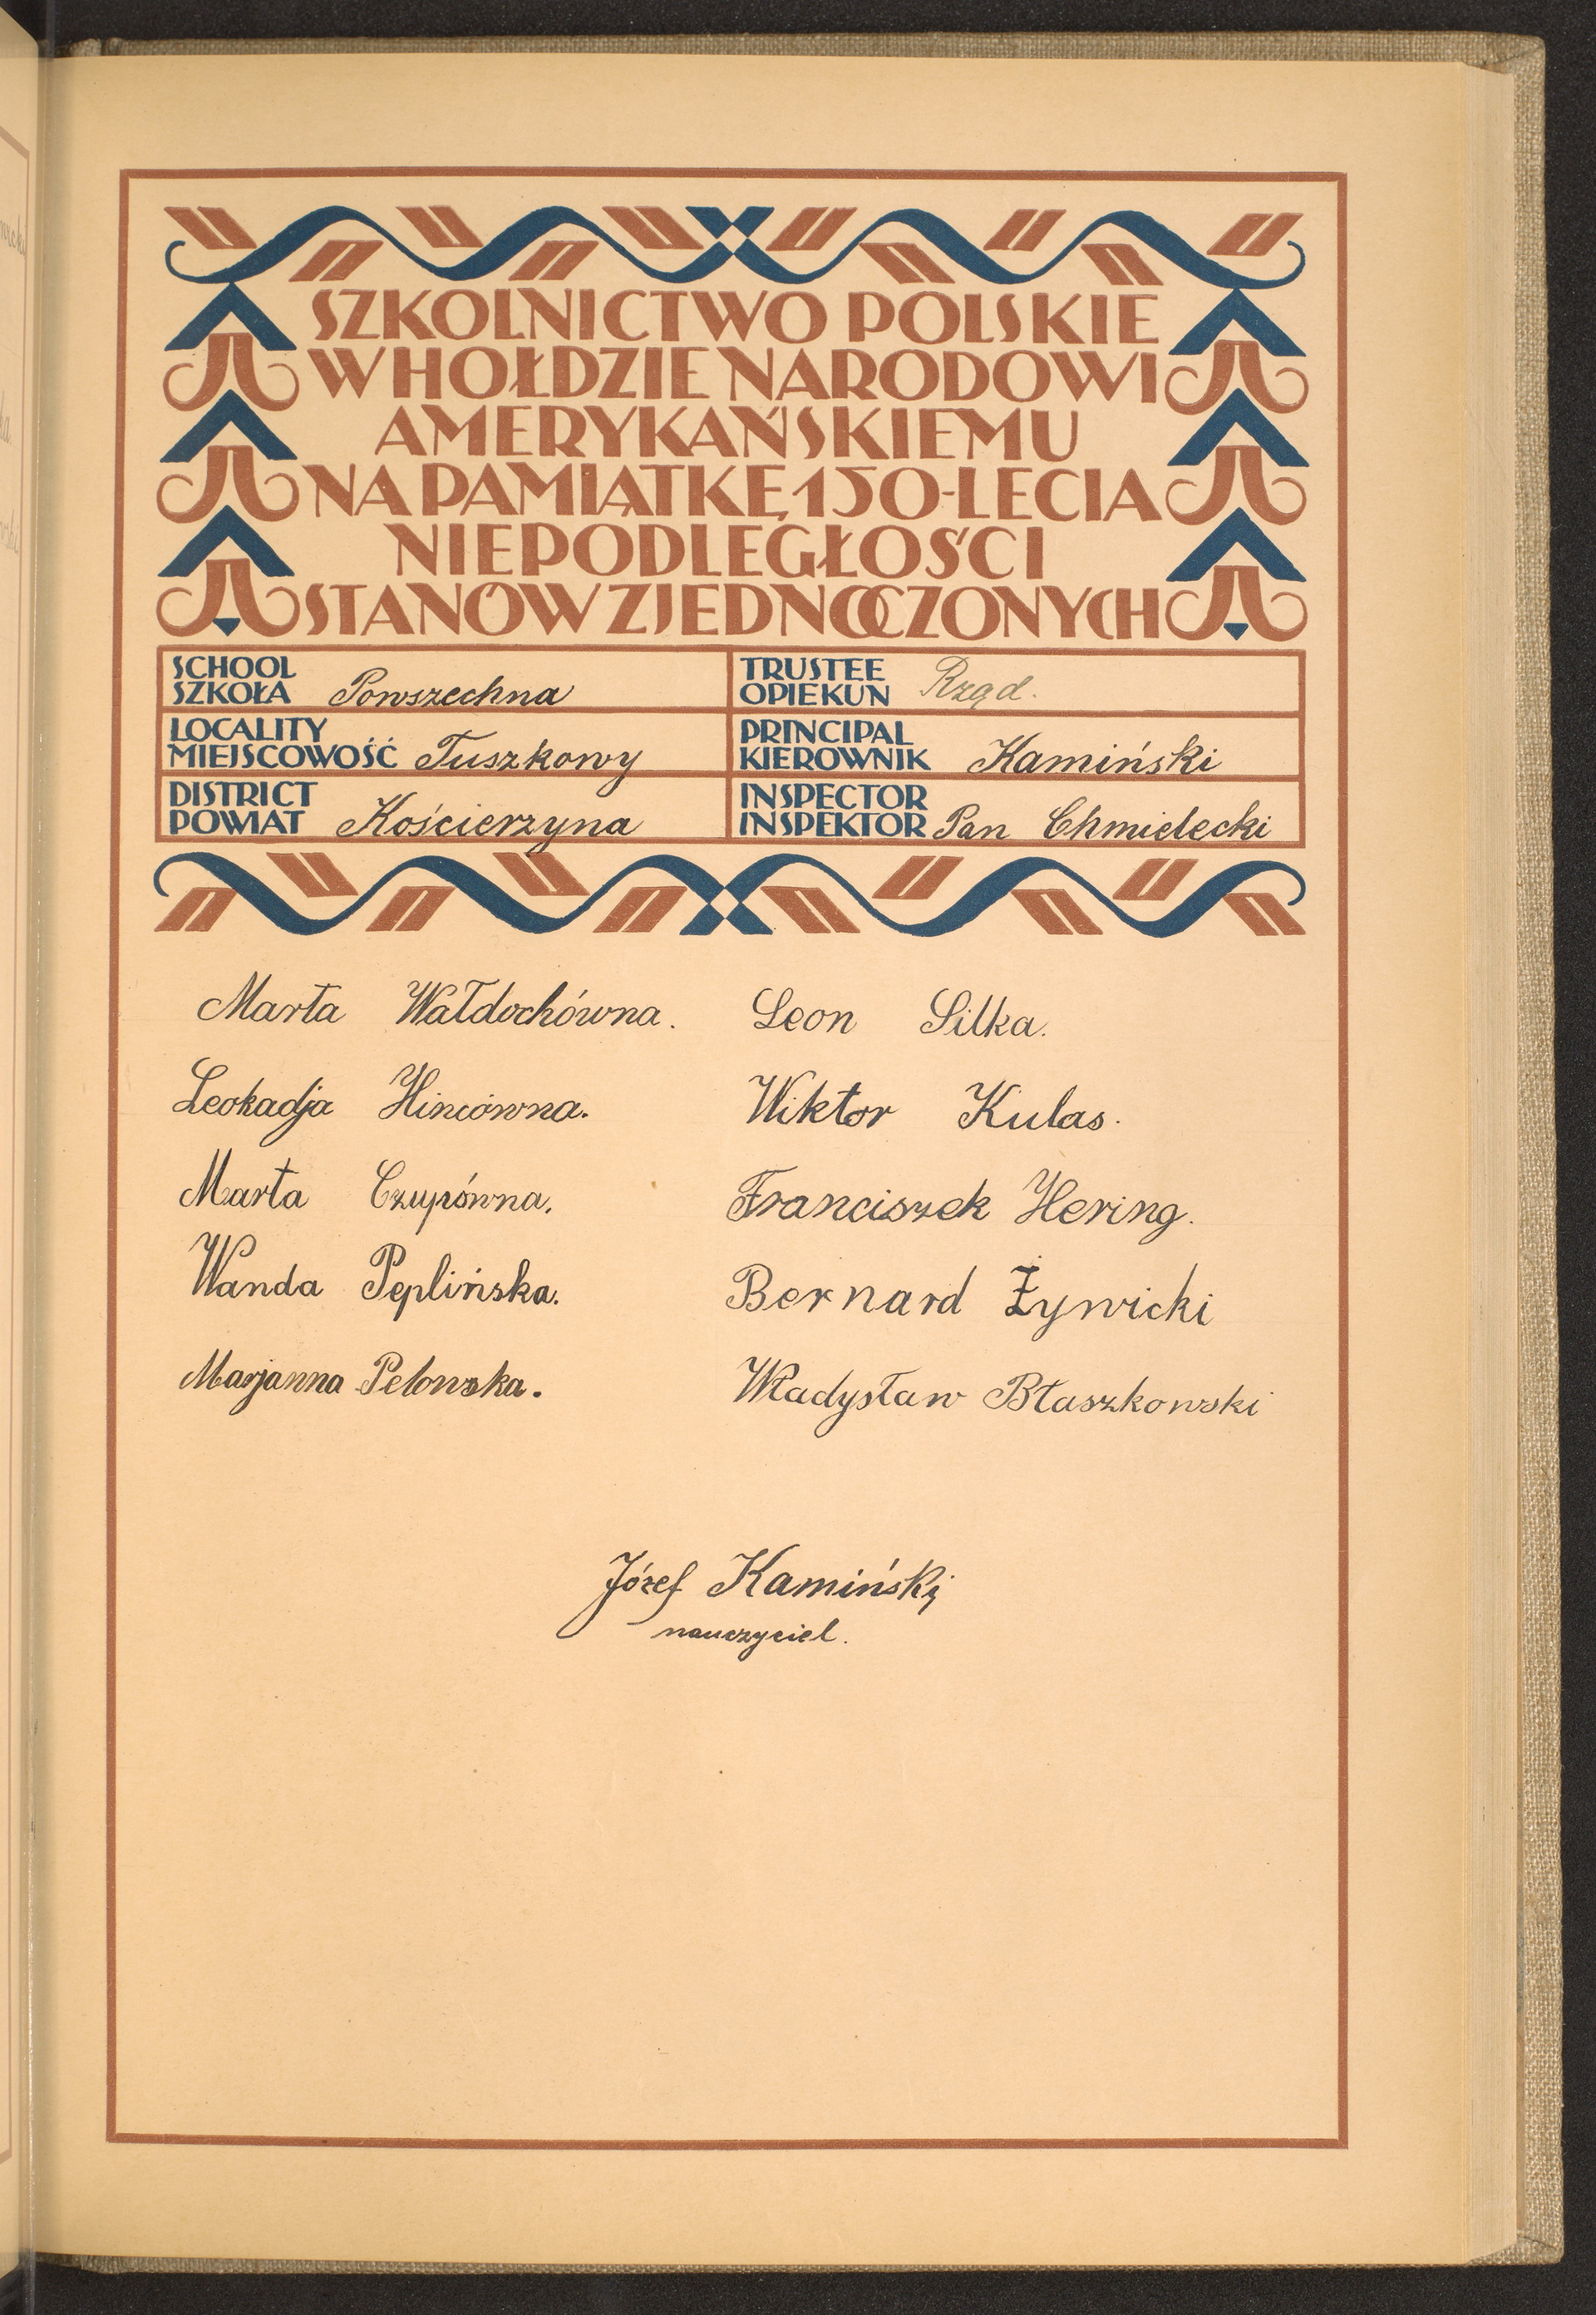 SZKOLNICTWO POLSKIE
W HOŁDZIE NARODOWI
AMERYKAŃSKIEMU
NA PAMIĄTKĘ 150-LECIA
NIEPODLEGŁOŚCI
STANÓW ZJEDNOCZONYCH
SCHOOL
SZKOŁA Powszechna
TRUSTEE
OPIEKUN Rząd.
LOCALITY
MIEJSCOWOŚĆ Tuszkowy
PRINCIPAL
KIEROWNIK Kamiński
DISTRICT
POWIAT Kościerzyna
INSPECTOR
INSPEKTOR Pan Chmielecki
Marta Wałdochówna.
Leokadja Hincówna.
Marta Czupówna.
Wanda Peplińska.
Marjanna Pelowska.
Leon Silka.
Wiktor Kulas.
Franciszek Hering.
Bernard Żywicki
Władysław Błaszkowski
Józef Kamiński
nauczyciel.